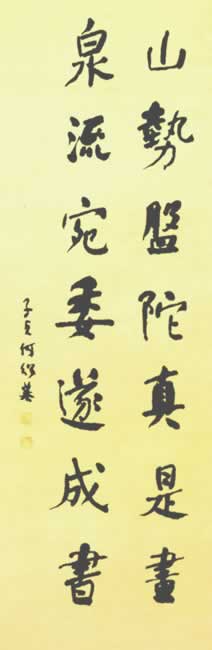 山勢盤陀真是畫
泉流宛委遂成書
子貞何紹基